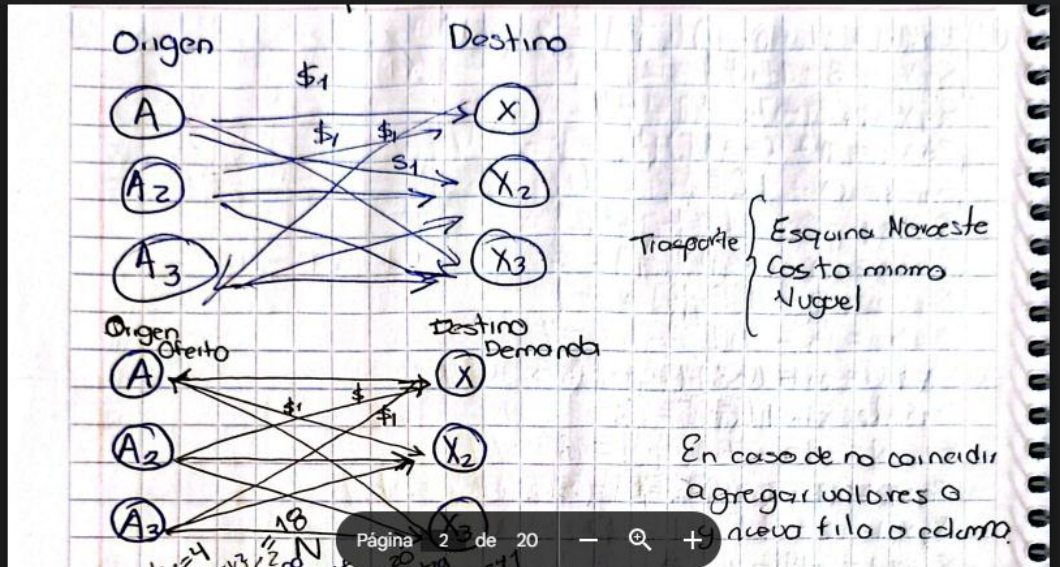 Origen
Destino
$1
A
X
$1
$1
A2
$1
X2
A3
X3
Esquina Noroeste
Costo minimo
Origen
Oferta
Destino
Demanda
A
X
$1
$
$1
A2
X2
En caso de no coincidir
agregar valores o
y nueva fila o columna.
A3
=18
X3
Página 2 de 20